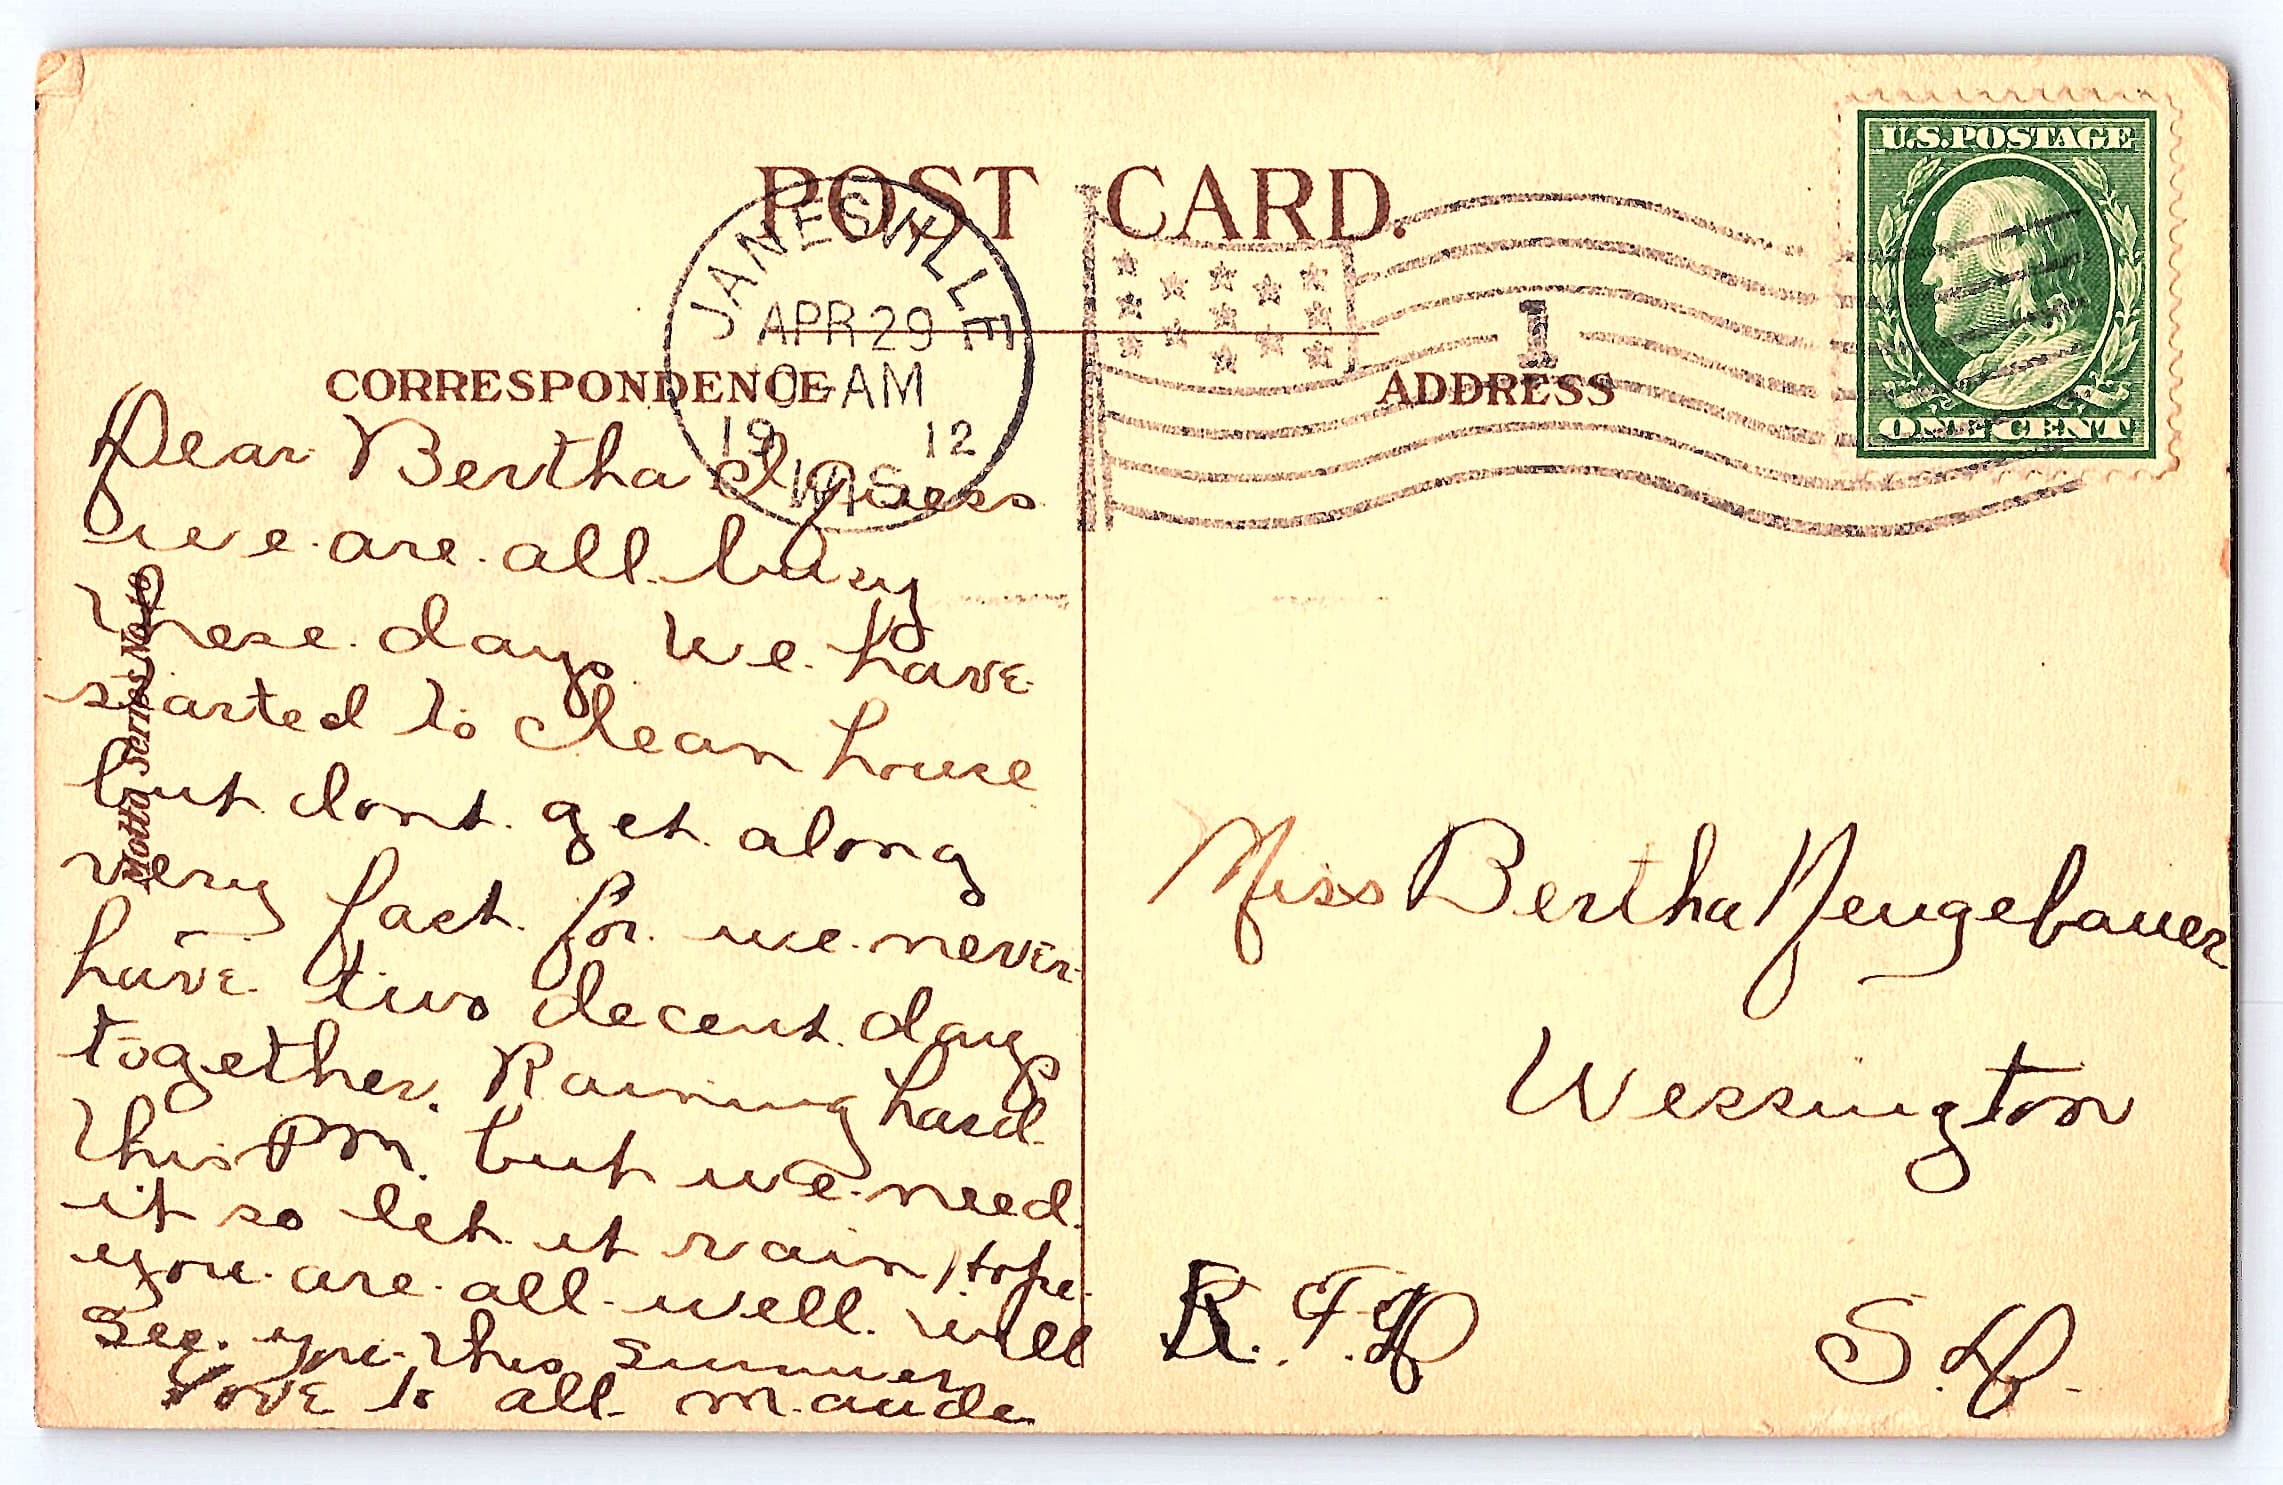 POST CARD.
U.S.POSTAGE
ONE CENT
JANESVILLE
APR 29
AM
19 12
WIS.
1
CORRESPONDENCE
ADDRESS
Dear Bertha I guess
we are all busy
these days. We have
started to clean house
but dont get along
very fast for we never
have two decent days
together. Raining hard
this P M. but we need
it so let it rain, Hope
you are all well. will
see you this summer
Love to all Maude
Motto Series No.
Miss Bertha Neugebauer
Wessington
R.F.D
S.D.